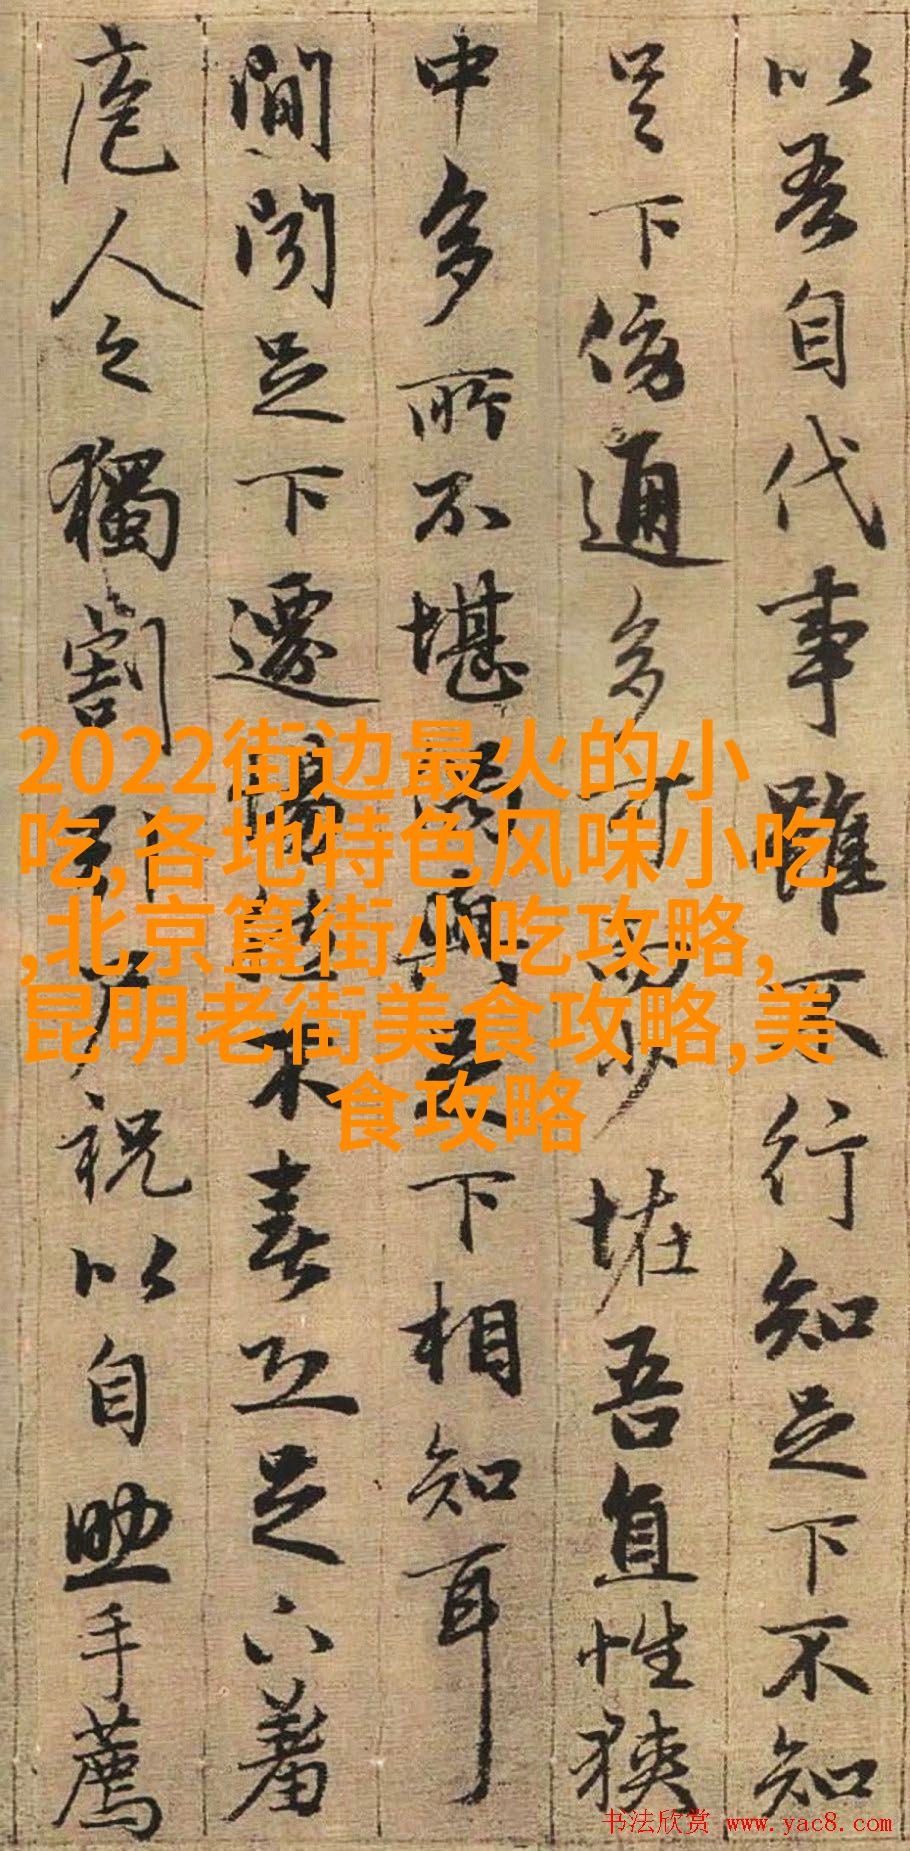 以吾自代事雖不行知足下不知
足下傍通多可而少恠吾直性狹
中多所不堪偶與足下相知耳
間聞足下遷惕然不喜恐足下羞
庖人之獨割引尸祝以自助手薦
2022街边最火的小
吃,各地特色风味小吃
,北京簋街小吃攻略,
昆明老街美食攻略,美
食攻略
书法欣赏 www.yac8.com